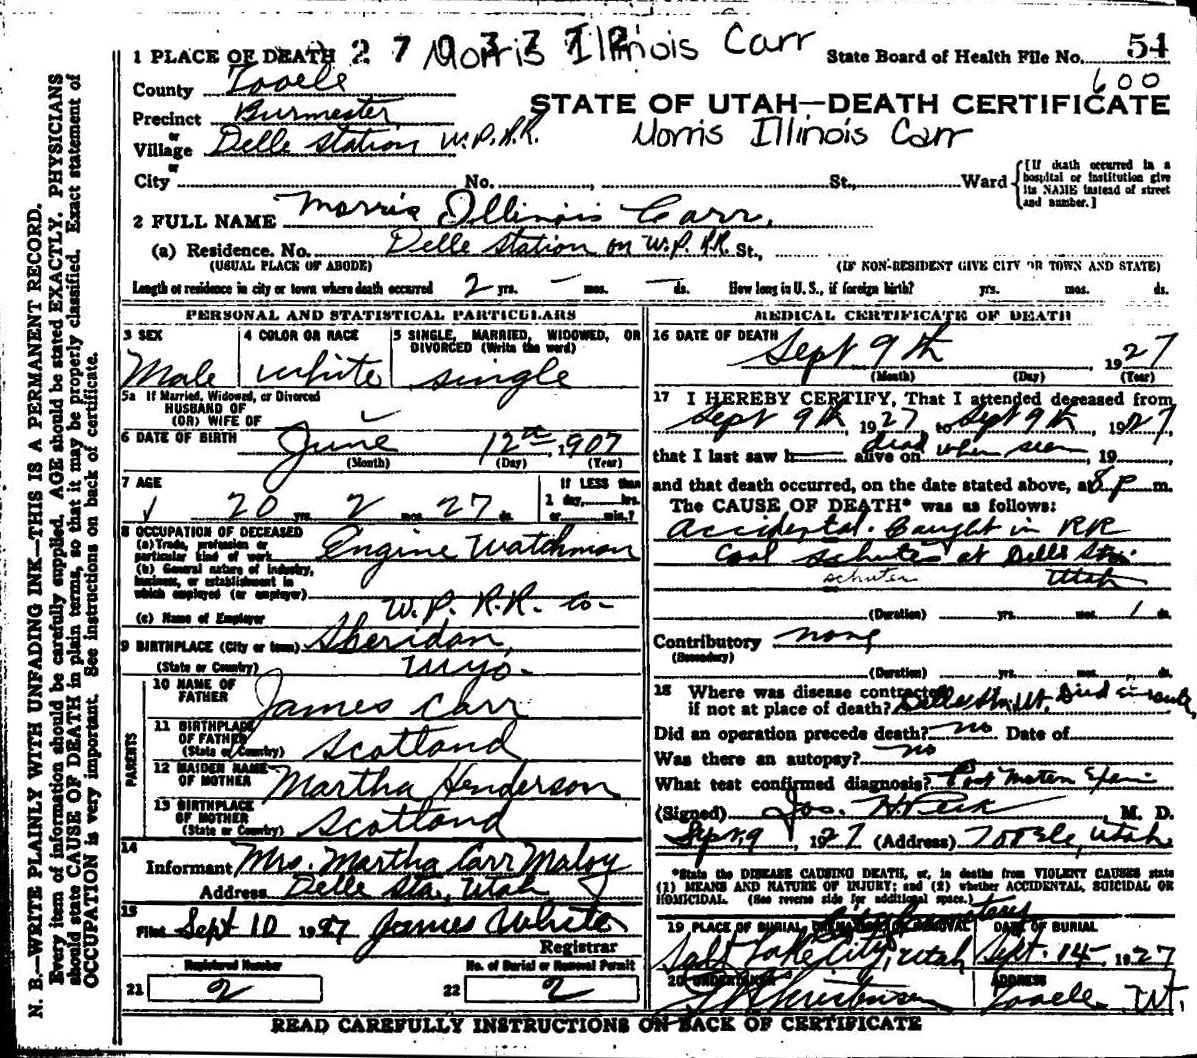 1 PLACE OF DEATH 2 7 Morris Illinois Carr State Board of Health File No. 54
600
County Tooele
STATE OF UTAH—DEATH CERTIFICATE
Precinct Burmester,
Morris Illinois Carr
or
Village Delle Station W.P.R.R.
or
City No. , St., Ward
[If death occurred in a hospital or institution give its NAME instead of street and number.]
2 FULL NAME Morris Illinois Carr,
(a) Residence. No. Delle Station on W.P. RR St.,
(USUAL PLACE OF ABODE) (IF NON-RESIDENT GIVE CITY OR TOWN AND STATE)
Length of residence in city or town where death occurred 2 yrs. — mos. — ds. How long in U. S., if foreign birth? yrs. mos. ds.
PERSONAL AND STATISTICAL PARTICULARS
3 SEX 4 COLOR OR RACE 5 SINGLE, MARRIED, WIDOWED, OR DIVORCED (Write the word)
Male white single
5a If Married, Widowed, or Divorced
HUSBAND OF
(OR) WIFE OF
6 DATE OF BIRTH June 12th, 1907
(Month) (Day) (Year)
7 AGE If LESS than
1 day, hrs.
20 yrs. 2 mos. 27 ds. or min.?
8 OCCUPATION OF DECEASED
(a) Trade, profession or particular kind of work Engine Watchman
(b) General nature of industry, business, or establishment in which employed (or employer)
(c) Name of Employer W.P. R.R. Co-
9 BIRTHPLACE (City or town) Sheridan,
(State or Country) Wyo.
PARENTS
10 NAME OF FATHER James Carr
11 BIRTHPLACE OF FATHER (State or Country) Scotland
12 MAIDEN NAME OF MOTHER Martha Henderson
13 BIRTHPLACE OF MOTHER (State or Country) Scotland
14
Informant Mrs. Martha Carr Maloy
Address Delle Sta., Utah
15
Filed Sept 10 1927 James White
Registrar
Registered Number No. of Burial or Removal Permit
21 2 22 2
MEDICAL CERTIFICATE OF DEATH
16 DATE OF DEATH Sept 9th 1927
(Month) (Day) (Year)
17 I HEREBY CERTIFY, That I attended deceased from
Sept 9th, 1927 to Sept 9th, 1927
that I last saw h— alive on dead when seen, 19
and that death occurred, on the date stated above, at 8 P m.
The CAUSE OF DEATH* was as follows:
Accidental. Caught in RR
Coal schutes at Delle Sta.
schutes Utah
(Duration) yrs. mos. 1 ds.
Contributory none
(Secondary)
(Duration) yrs. mos. ds.
18 Where was disease contracted
if not at place of death? Delle Sta, Ut. Died
Did an operation precede death? no Date of
Was there an autopsy? no
What test confirmed diagnosis? Post Mortem Exam
(Signed) Jos. H. Peck M. D.
Sept. 9 1927 (Address) Tooele, Utah
*State the DISEASE CAUSING DEATH, or, in deaths from VIOLENT CAUSES state
(1) MEANS AND NATURE OF INJURY; and (2) whether ACCIDENTAL, SUICIDAL OR
HOMICIDAL. (See reverse side for additional space.)
19 PLACE OF BURIAL, CREMATION OR REMOVAL DATE OF BURIAL
City Cemetary
Salt Lake City, Utah Sept. 14 1927
20 UNDERTAKER ADDRESS
Christensen Tooele Ut.
READ CAREFULLY INSTRUCTIONS ON BACK OF CERTIFICATE
N. B.—WRITE PLAINLY WITH UNFADING INK—THIS IS A PERMANENT RECORD.
Every item of information should be carefully supplied. AGE should be stated EXACTLY. PHYSICIANS
should state CAUSE OF DEATH in plain terms, so that it may be properly classified. Exact statement of
OCCUPATION is very important. See instructions on back of certificate.